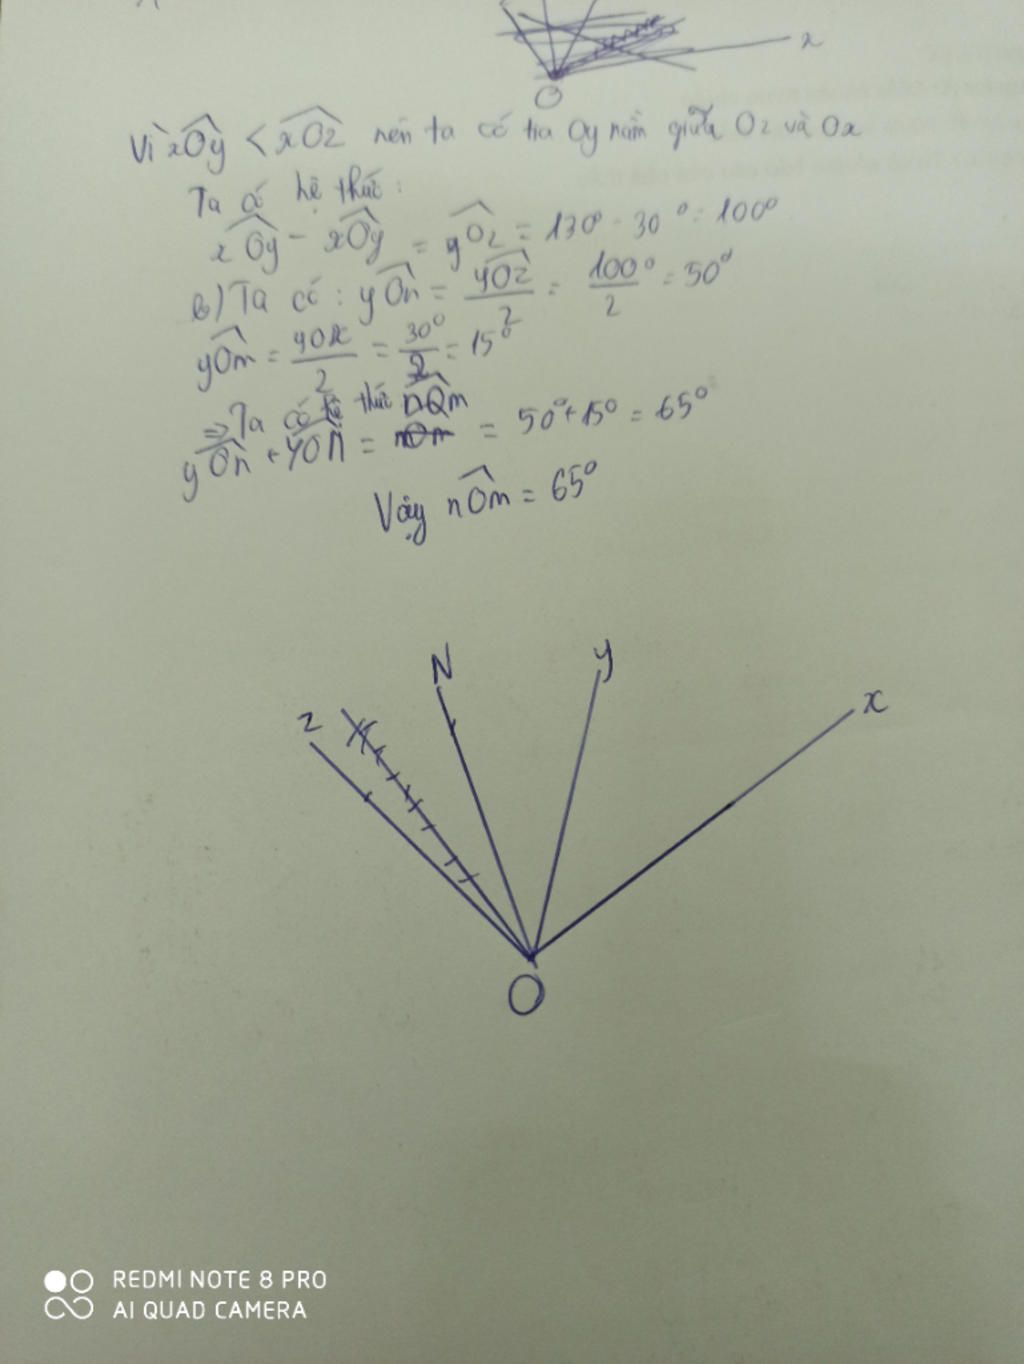 x
O
Vì xOy < xOz nên ta có tia Oy nằm giữa Oz và Ox
Ta có hệ thức:
xOy - xOy = yOz = 130° - 30° = 100°
b) Ta có: yOn = yOz/2 = 100°/2 = 50°
yOm = yOx/2 = 30°/2 = 15°
=> Ta có hệ thức nOm
yOn + yOn = nOm = 50° + 15° = 65°
Vậy nOm = 65°
N
y
z
x
O
REDMI NOTE 8 PRO
AI QUAD CAMERA